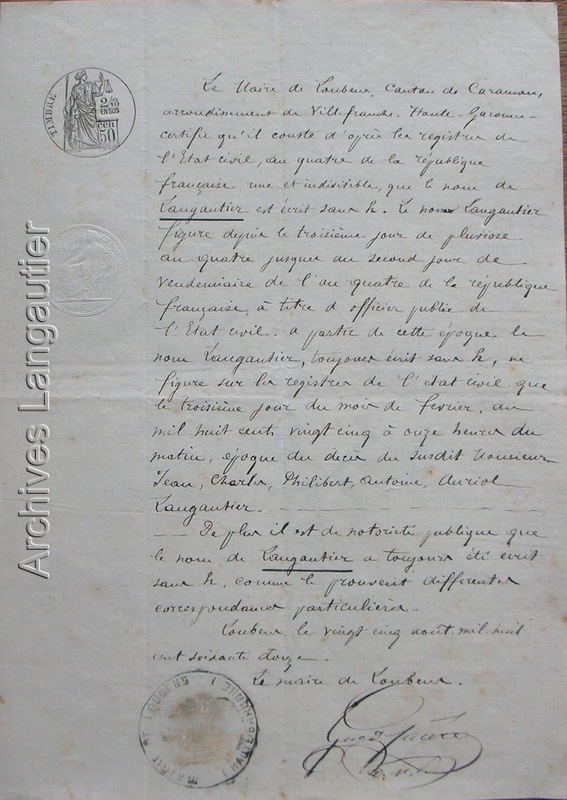 TIMBRE
2/10
EN SUS
50
CEN
Le Maire de Loubens, Canton de Caraman,
arrondissement de Villefranche. Haute-Garonne
certifie qu'il conste d'après les registres de
l'Etat civil, au quatre de la république
française, une et indivisible, que le nom de
Langautier est écrit sans h. Le nom Langautier
figure depuis le troisième jour de pluviose
au quatre jusques au second jour de
Vendemiaire de l'au quatre de la république
française, à titre d'officier public de
l'Etat civil. a partir de cette époque le
nom Langautier, toujours écrit sans h, ne
figure sur les registres de l'état civil que
le troisième jour du mois de fevrier, an
mil huit cents vingt cinq à onze heures du
matin, époque du decès du susdit Monsieur
Jean, Charles, Philibert, Antoine, Auriol
Langautier.
De plus il est de notoriété publique que
le nom de Langautier a toujours été écrit
sans h, comme le prouvent différentes
correspondances particulières.
Loubens le vingt cinq août mil huit
cent soixante douze.
Le maire de Loubens.
MAIRIE DE LOUBENS
(HAUTE GARONNE)
Archives Langautier